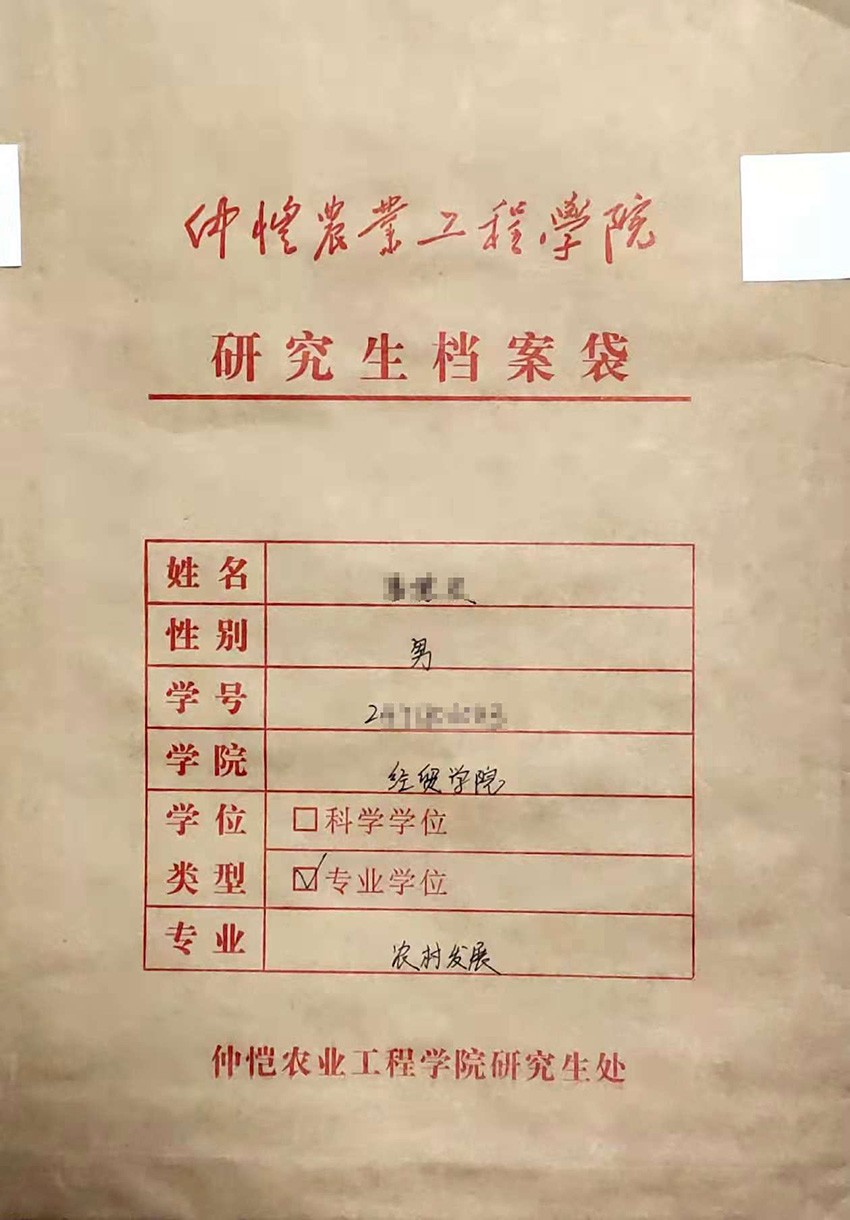 仲恺農業工程學院
研究生档案袋
姓名
性别 男
学号 2
学院 经贸学院
学位 □科学学位
类型 ☑专业学位
专业 农村发展
仲恺农业工程学院研究生处